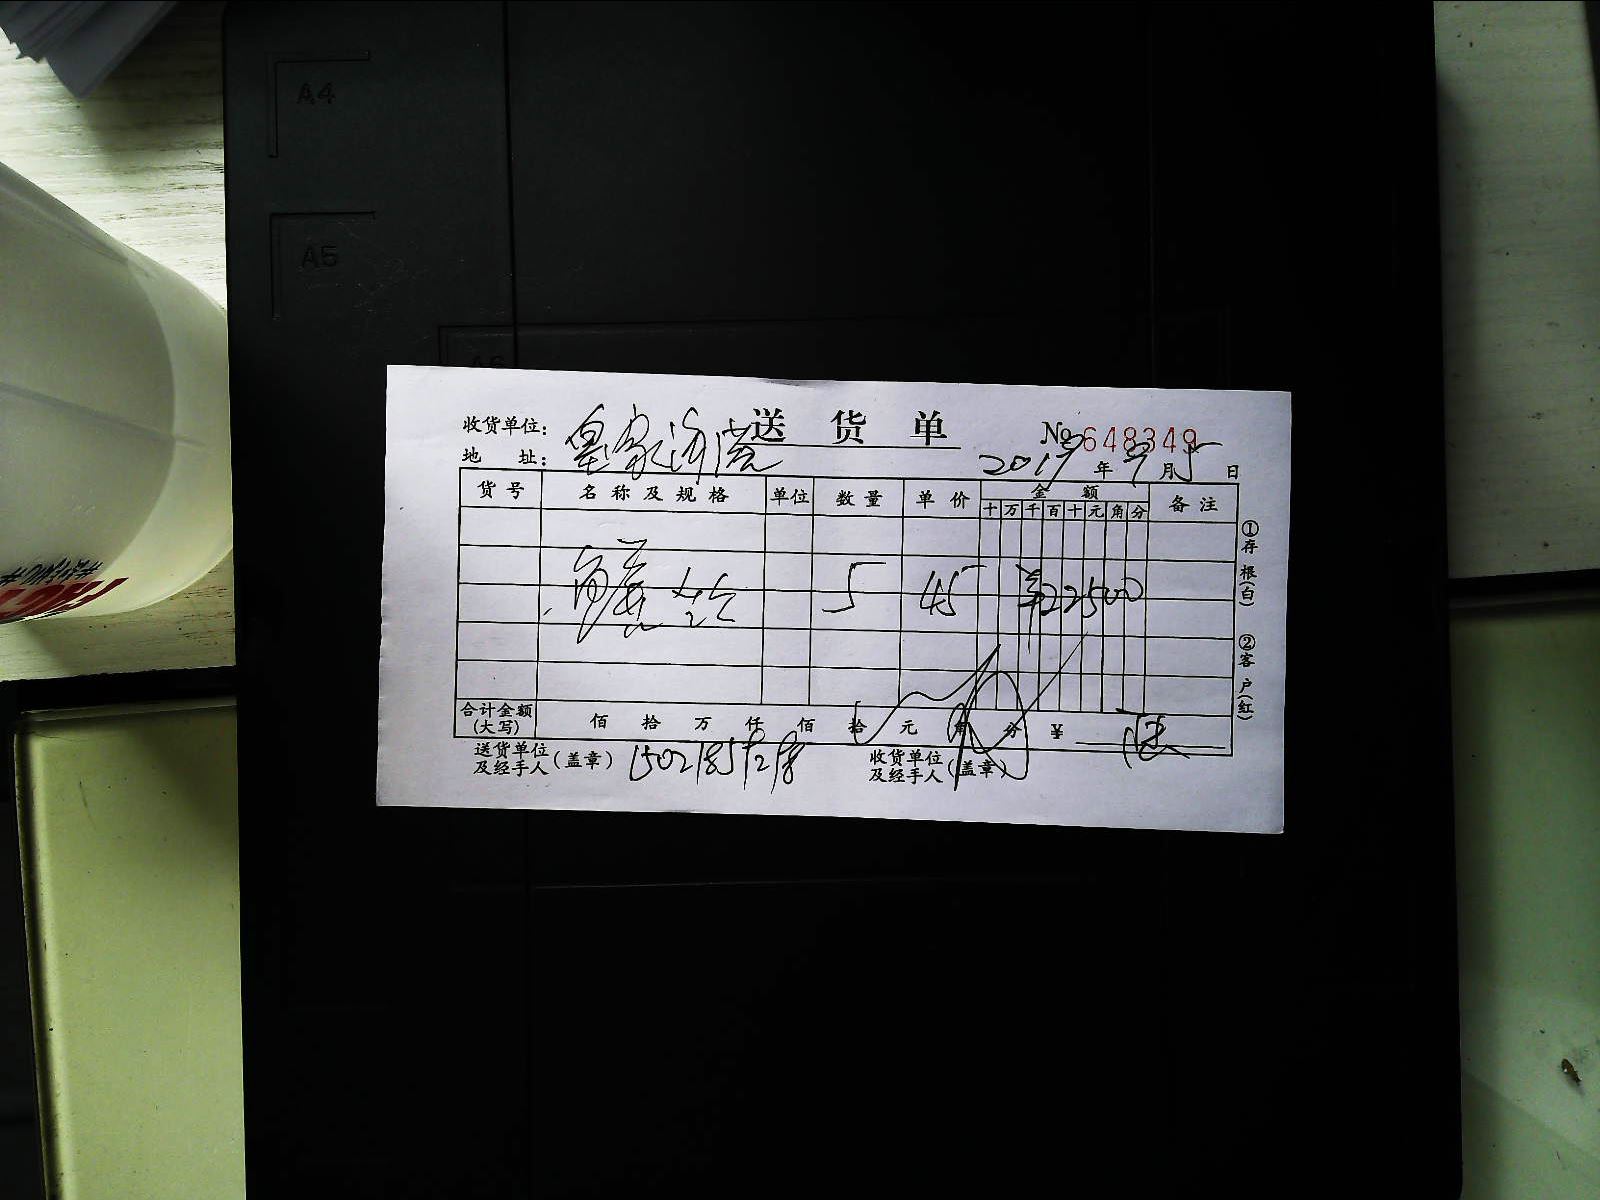 A4
A5
A6
送货单
收货单位: 皇家
№ 648349
地 址:
2019年9月5日
货号 名称及规格 单位 数量 单价 金额 备注
十 万 千 百 十 元 角 分
鳝丝 5 45 ¥22500
合计金额(大写) 佰 拾 万 仟 佰 拾 元 角 分 ¥
送货单位及经手人(盖章)
收货单位及经手人(盖章)
①存根(白)
②客户(红)